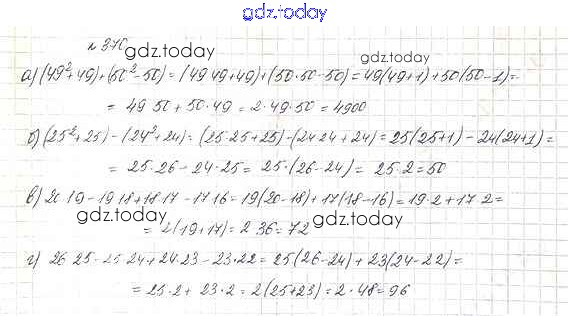 gdz.today
№ 370
gdz.today
gdz.today
а) (49²+49)+(50²-50)=(49·49+49)+(50·50-50)=49(49+1)+50(50-1)=
= 49·50+50·49=2·49·50=4900
б) (25²+25)-(24²+24)=(25·25+25)-(24·24+24)=25(25+1)-24(24+1)=
= 25·26-24·25=25·(26-24)=25·2=50
в) 20·19-19·18+18·17-17·16=19(20-18)+17(18-16)=19·2+17·2=
gdz.today
gdz.today
= 2(19+17)=2·36=72
г) 26·25-25·24+24·23-23·22=25(26-24)+23(24-22)=
= 25·2+23·2=2(25+23)=2·48=96